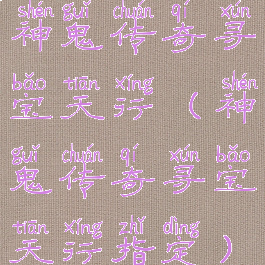 shén guǐ chuán qí xún
神鬼传奇寻
bǎo tiān xíng shén
宝天行（神
guǐ chuán qí xún bǎo
鬼传奇寻宝
tiān xíng zhǐ dìng
天行指定）